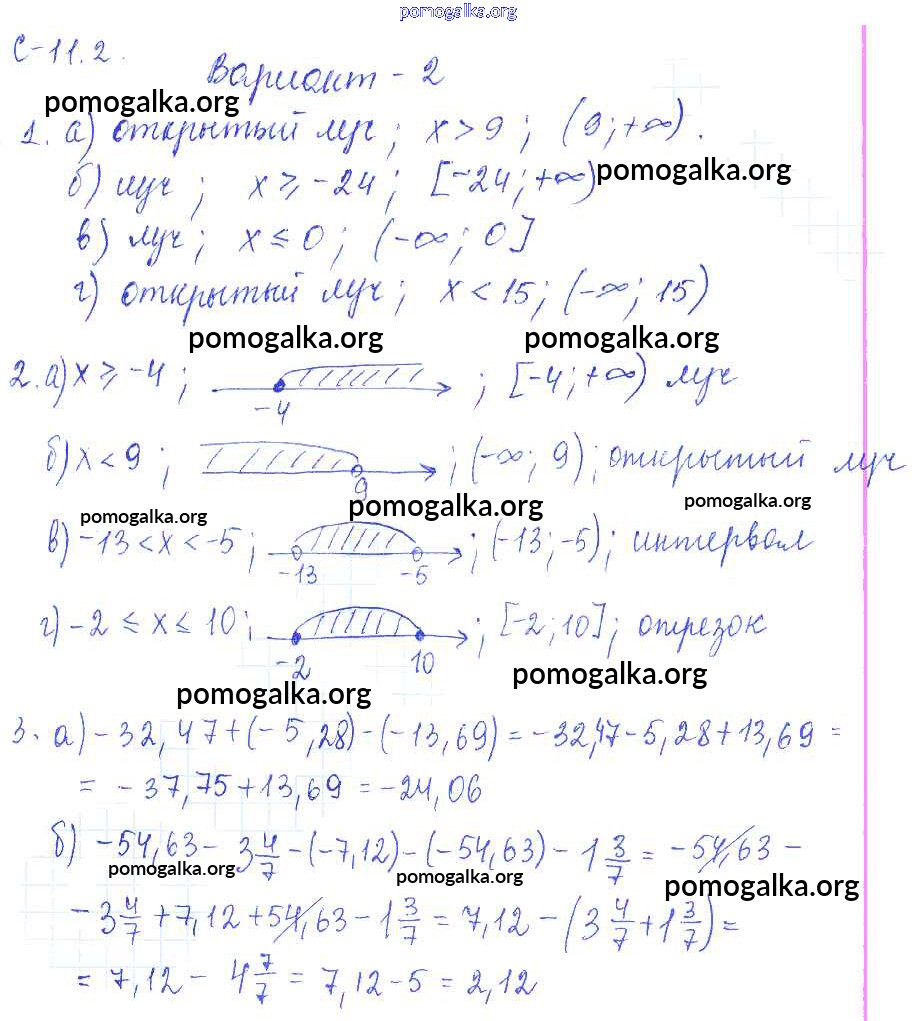 pomogalka.org
С-11.2.
Вариант - 2
pomogalka.org
1. а) открытый луч; x > 9; (9; +∞).
б) луч; x ≥ -24; [-24; +∞) pomogalka.org
в) луч; x ≤ 0; (-∞; 0]
г) открытый луч; x < 15; (-∞; 15)
pomogalka.org pomogalka.org
2. а) x ≥ -4; ; [-4; +∞) луч
-4
б) x < 9; ; (-∞; 9); открытый луч
9
pomogalka.org pomogalka.org pomogalka.org
в) -13 < x < -5; ; (-13; -5); интервал
-13 -5
г) -2 ≤ x ≤ 10; ; [-2; 10]; отрезок
-2 10
pomogalka.org pomogalka.org
3. а) -32,47 + (-5,28) - (-13,69) = -32,47 - 5,28 + 13,69 =
= -37,75 + 13,69 = -24,06
б) -54,63 - 3 4/7 - (-7,12) - (-54,63) - 1 3/7 = -54,63 -
pomogalka.org pomogalka.org pomogalka.org
- 3 4/7 + 7,12 + 54,63 - 1 3/7 = 7,12 - (3 4/7 + 1 3/7) =
= 7,12 - 4 7/7 = 7,12 - 5 = 2,12